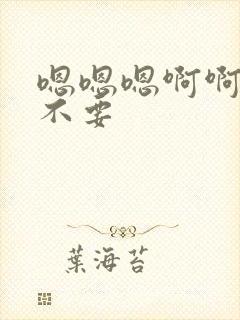 嗯嗯嗯啊啊
不要
葉海苔